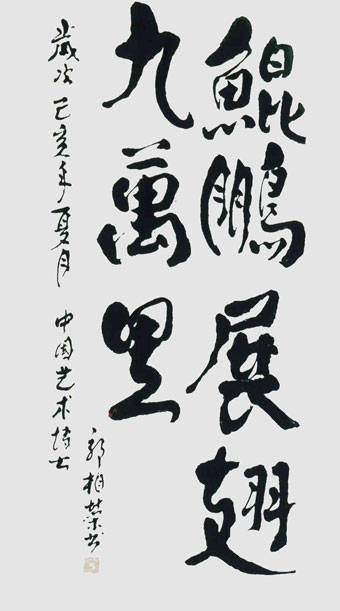 鯤鵬展翅
九萬里
歲次己亥年夏月 中国艺术博士
郭柏荣书